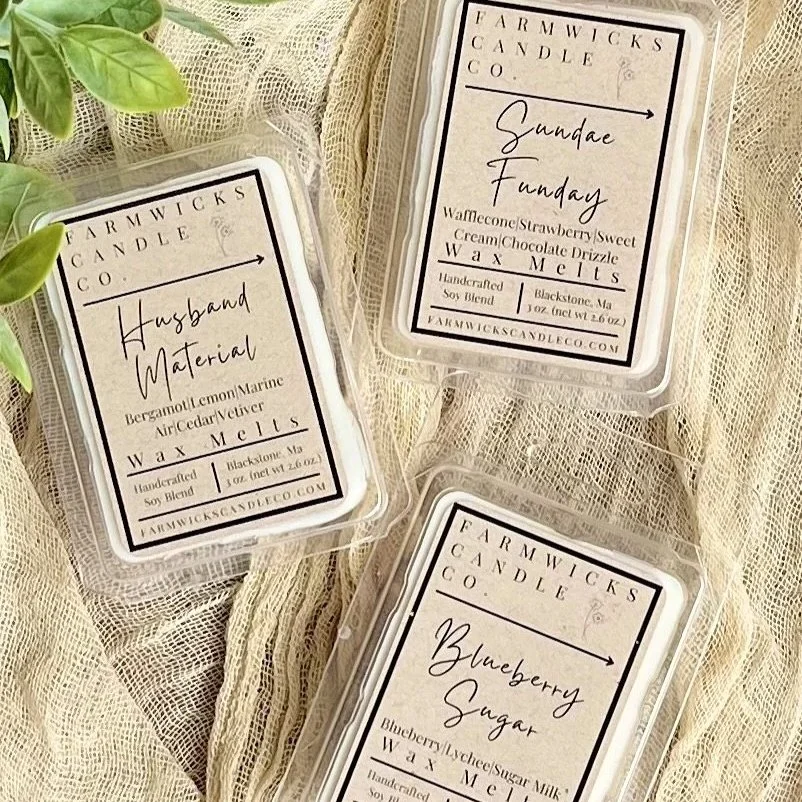 FARMWICKS
CANDLE
CO.
Husband
Material
Bergamot|Lemon|Marine
Air|Cedar|Vetiver
Wax Melts
Handcrafted
Soy Blend
Blackstone, Ma
3 oz. (net wt 2.6 oz.)
FARMWICKSCANDLECO.COM
FARMWICKS
CANDLE
CO.
Sundae
Funday
Wafflecone|Strawberry|Sweet
Cream|Chocolate Drizzle
Wax Melts
Handcrafted
Soy Blend
Blackstone, Ma
3 oz. (net wt 2.6 oz.)
FARMWICKSCANDLECO.COM
FARMWICKS
CANDLE
CO.
Blueberry
Sugar
Blueberry|Lychee|Sugar Milk
Wax Melts
Handcrafted
Soy Blend